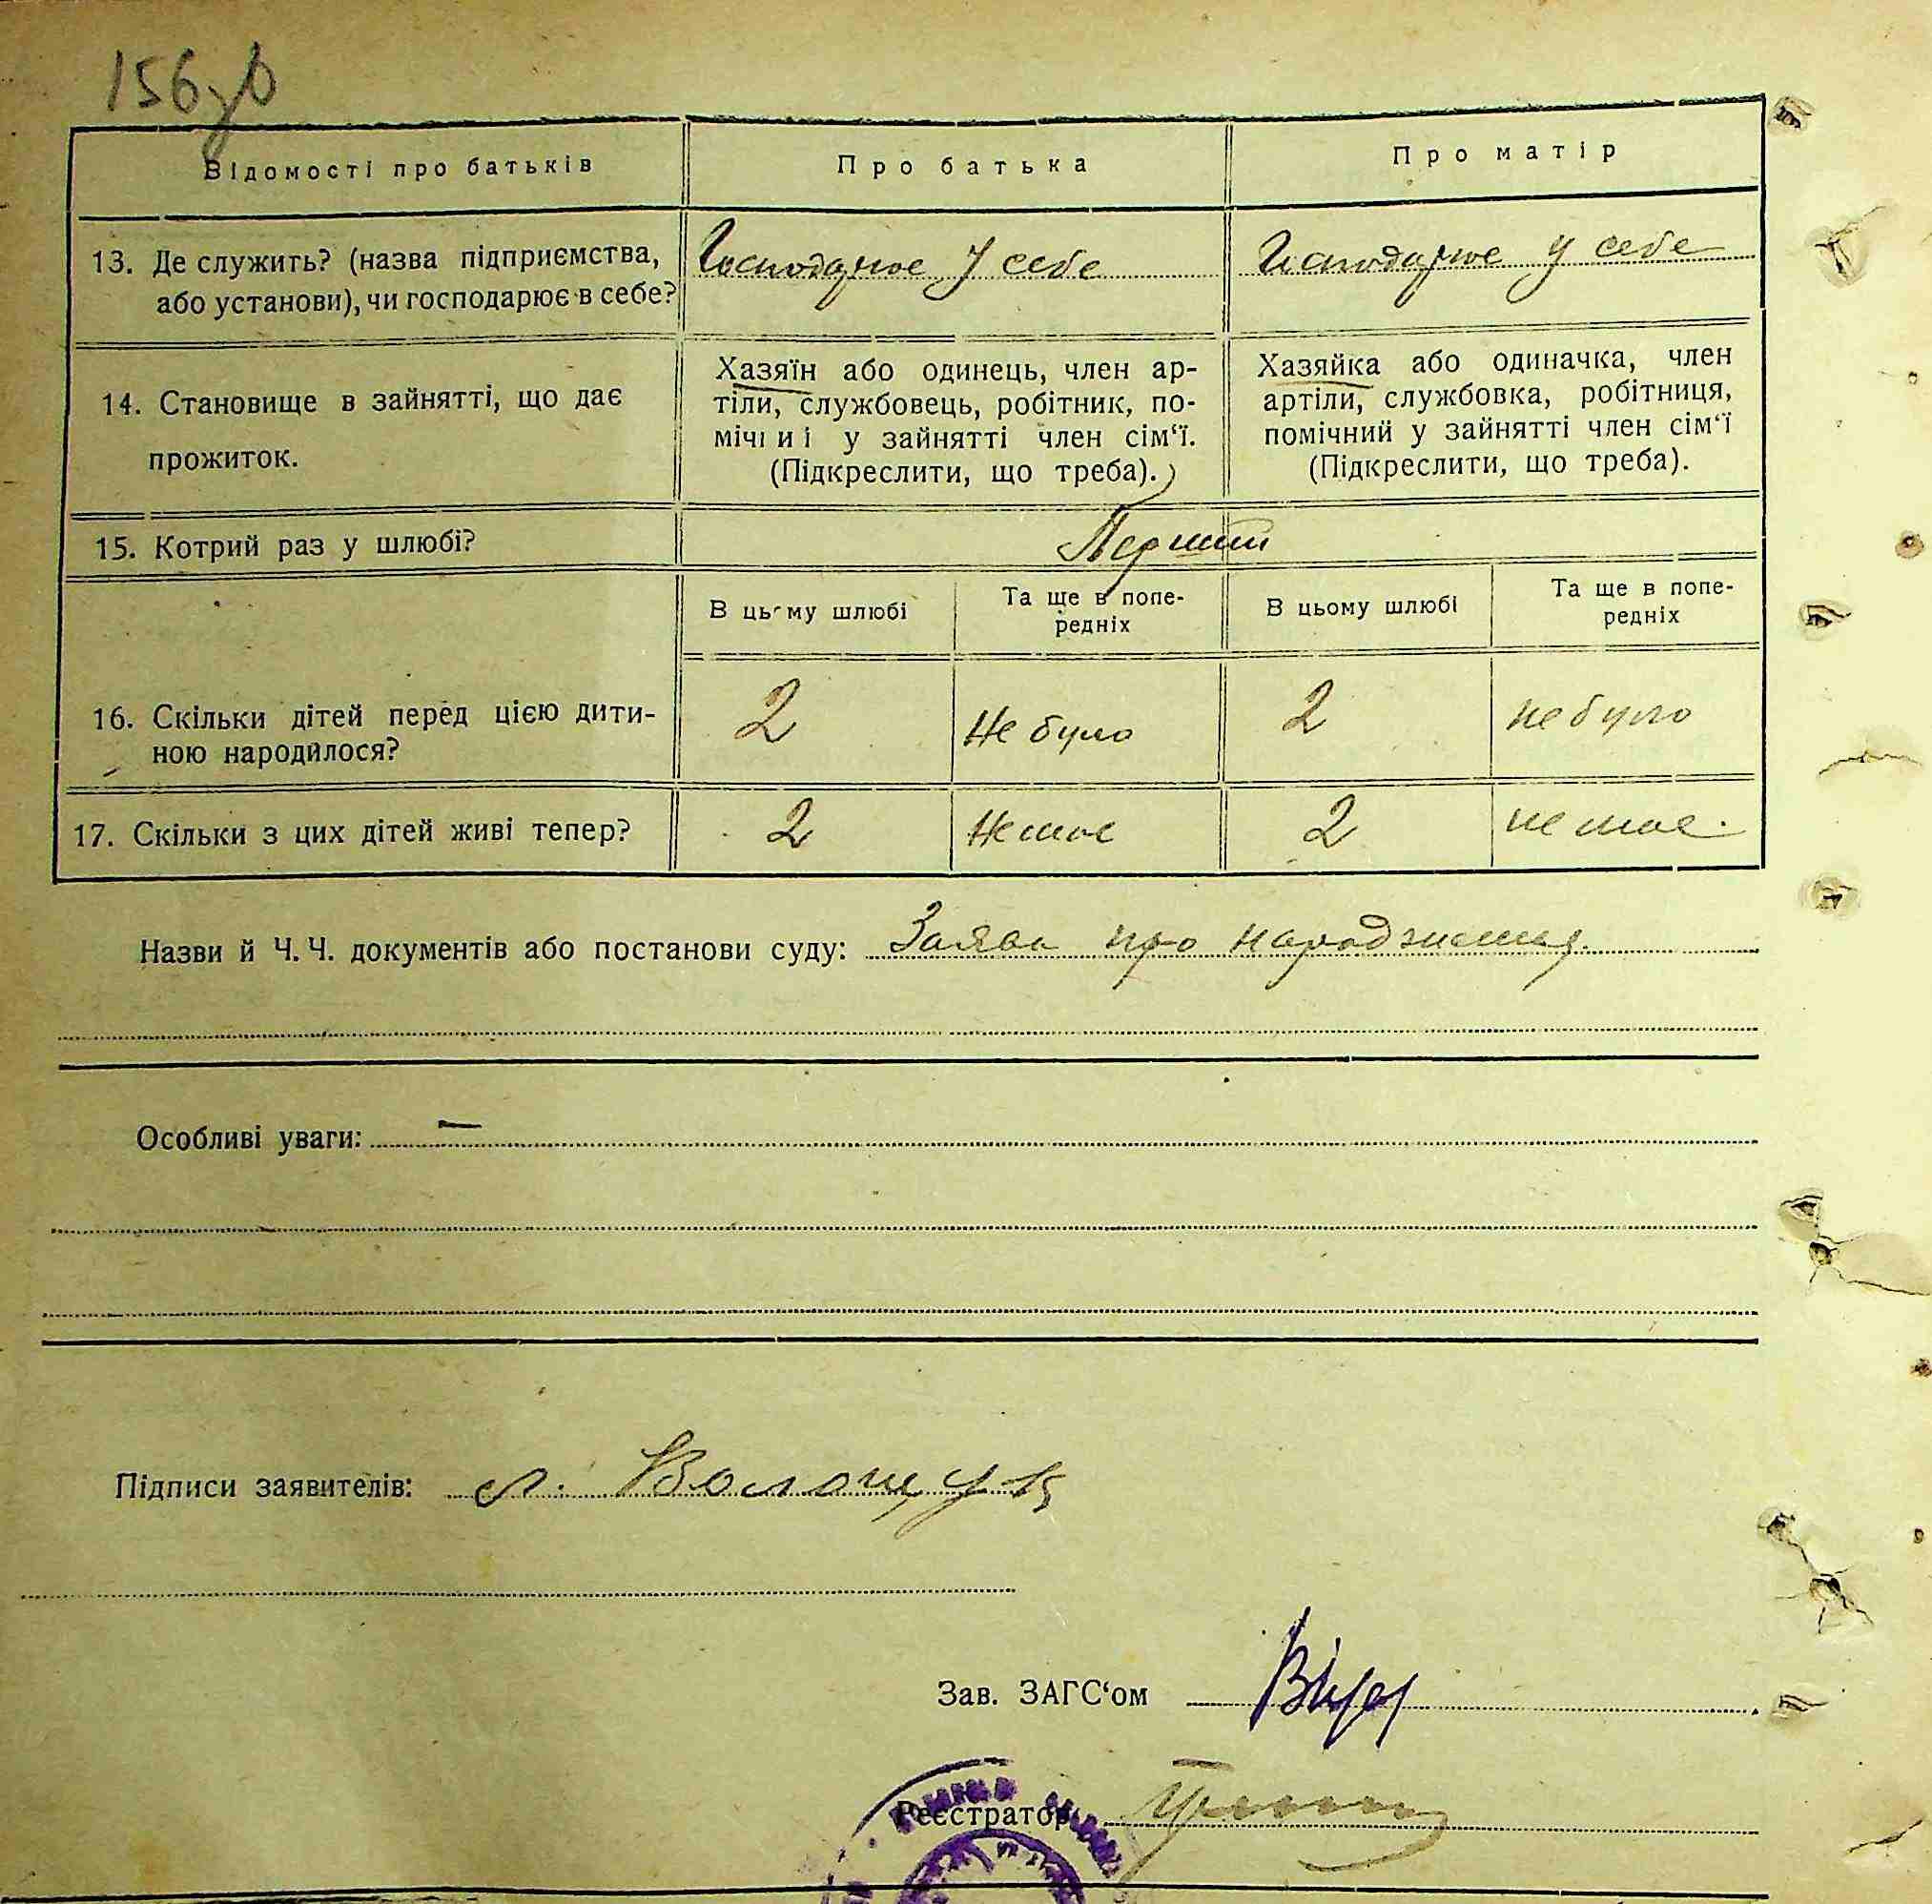 156зв
Відомості про батьків
Про батька
Про матір
13. Де служить? (назва підприємства,
або установи), чи господарює в себе?
Господарює у себе
Господарює у себе
14. Становище в зайнятті, що дає
прожиток.
Хазяїн або одинець, член ар-
тіли, службовець, робітник, по-
мічний у зайнятті член сім‘ї.
(Підкреслити, що треба).
Хазяйка або одиначка, член
артіли, службовка, робітниця,
помічний у зайнятті член сім‘ї
(Підкреслити, що треба).
15. Котрий раз у шлюбі?
Перший
В цьому шлюбі
Та ще в попе-
редніх
В цьому шлюбі
Та ще в попе-
редніх
16. Скільки дітей перед цією дити-
ною народилося?
2
Не було
2
не було
17. Скільки з цих дітей живі тепер?
2
Немає
2
немає.
Назви й Ч. Ч. документів або постанови суду: Заява про народження.
Особливі уваги: —
Підписи заявителів: л. Волощук
Зав. ЗАГС‘ом
Реєстратор